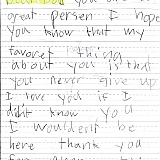 you are a
great person I hope
you know that my
favoret thing
about you is that
you never give up
I love you if I
didnt know you
I wouldent be
here thank you